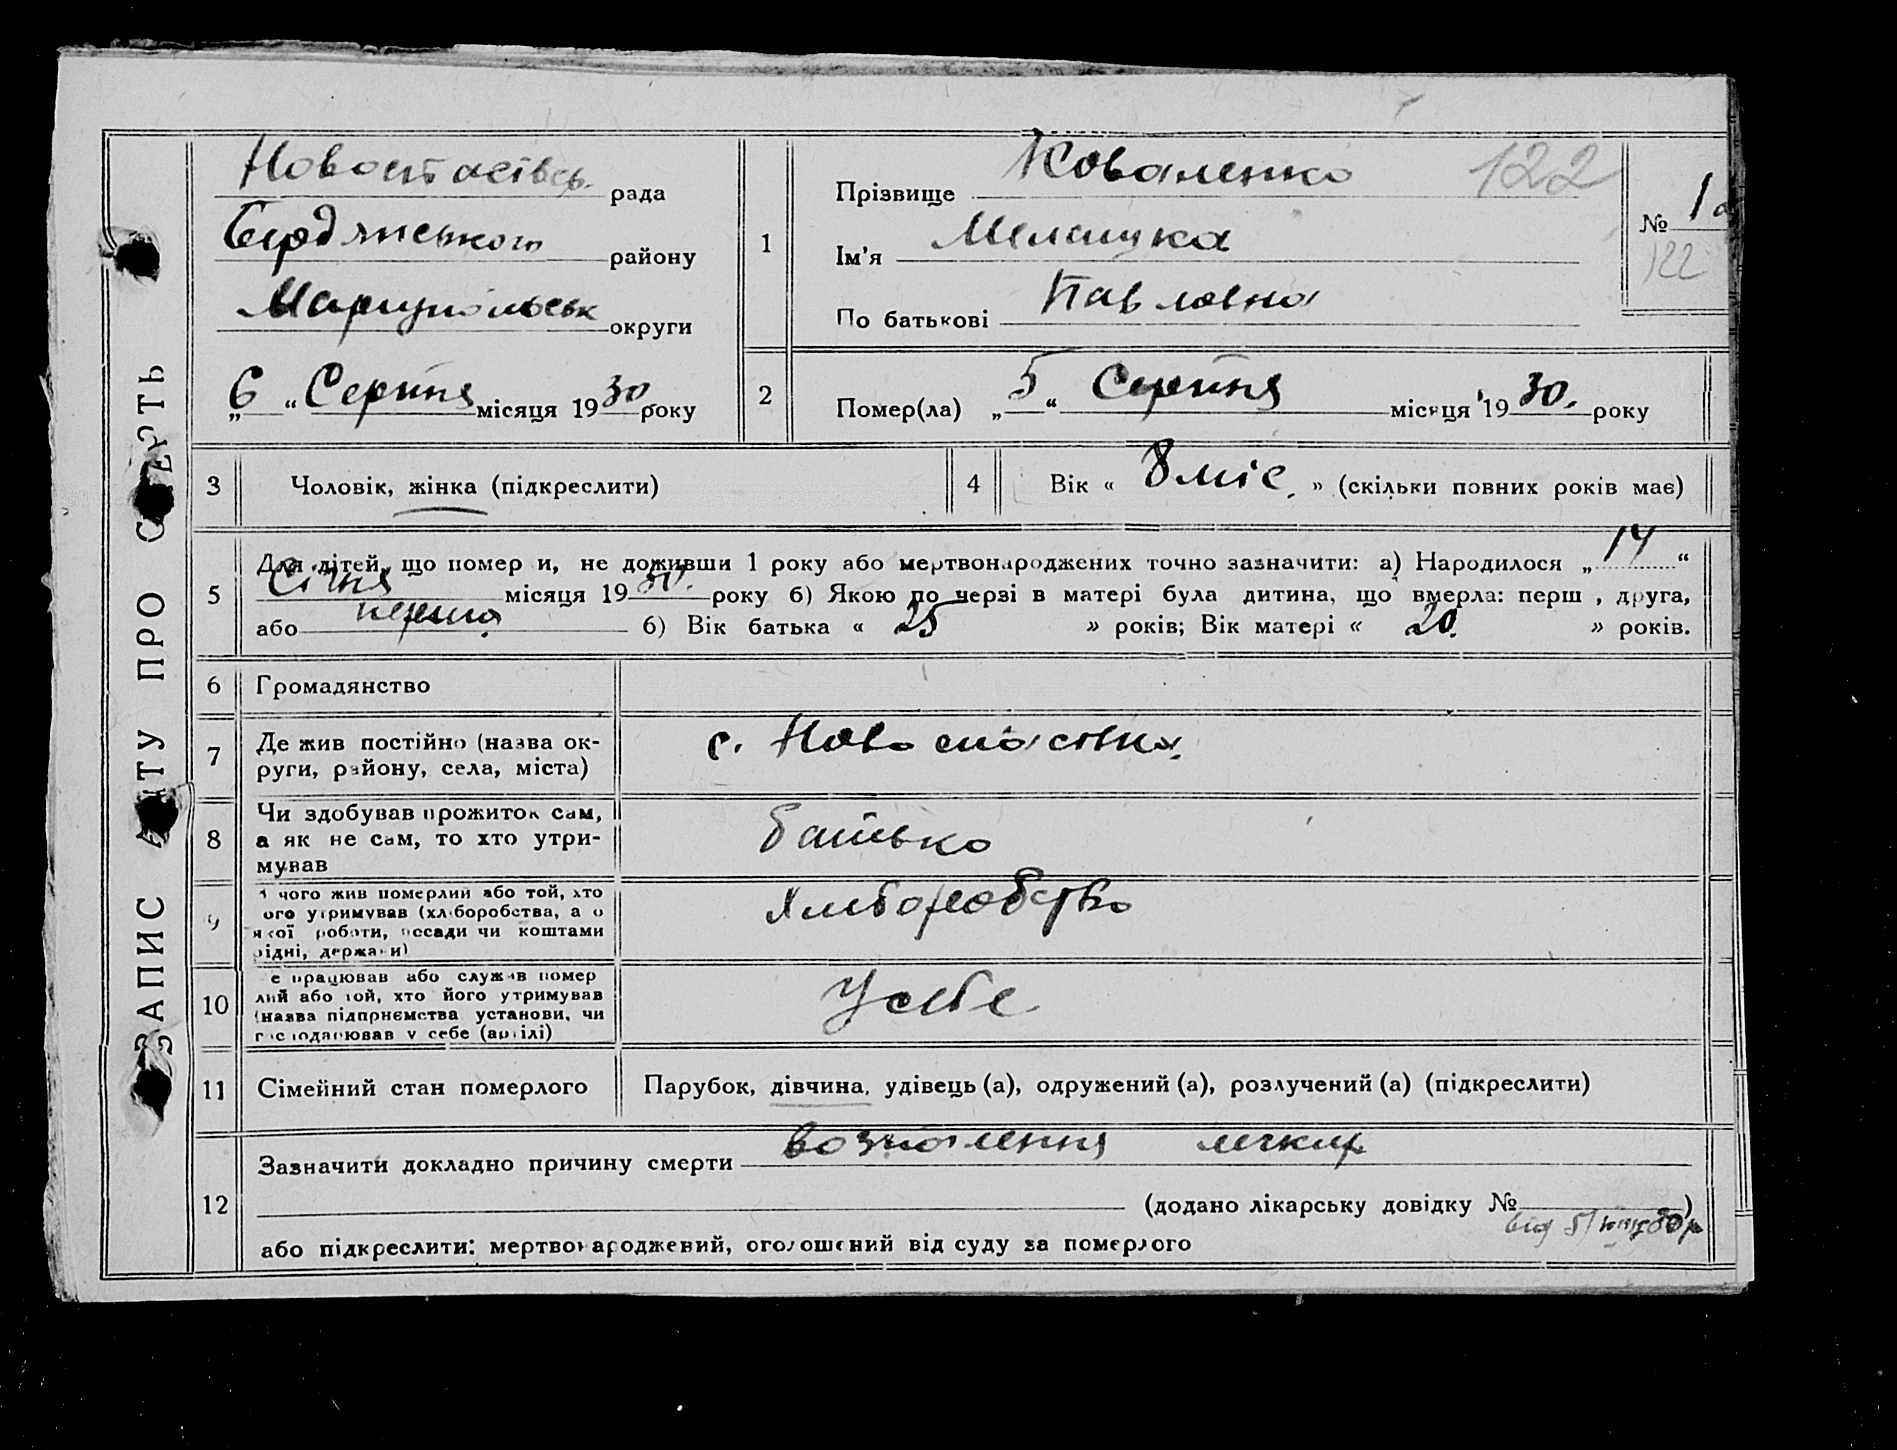 ЗАПИС АКТУ ПРО СМЕРТЬ
рада
Бердянського району
Маріупольськ округи
„6“ Серпня місяця 1930 року
1
Прізвище Коваленко 122
Ім'я
По батькові Павловна
№ 1
122
2
Помер(ла) „5“ Серпня місяця 1930. року
3
Чоловік, жінка (підкреслити)
4
Вік « 8 міс. » (скільки повних років має)
5
Для дітей, що померли, не доживши 1 року або мертвонароджених точно зазначити: а) Народилося „14“
Січня місяця 1930. року б) Якою по черзі в матері була дитина, що вмерла: перш , друга,
або перша 6) Вік батька « 25 » років; Вік матері « 20. » років.
6
Громадянство
7
Де жив постійно (назва ок-
руги, району, села, міста)
с. Новоспасівка.
8
Чи здобував прожиток сам,
а як не сам, то хто утри-
мував
батько
9
чого жив померлий або той, хто
ого утримував (хліборобства, а о
якої роботи, посади чи коштами
рідні, держави)
Хліборобство
10
е працював або служив помер
лий або той, хто його утримував
(назва підприємства установи, чи
господарював у себе (артілі)
У себе
11
Сімейний стан померлого
Парубок, дівчина, удівець (а), одружений (а), розлучений (а) (підкреслити)
12
Зазначити докладно причину смерти
(додано лікарську довідку № )
від
або підкреслити: мертвонароджений, оголошений від суду за померлого